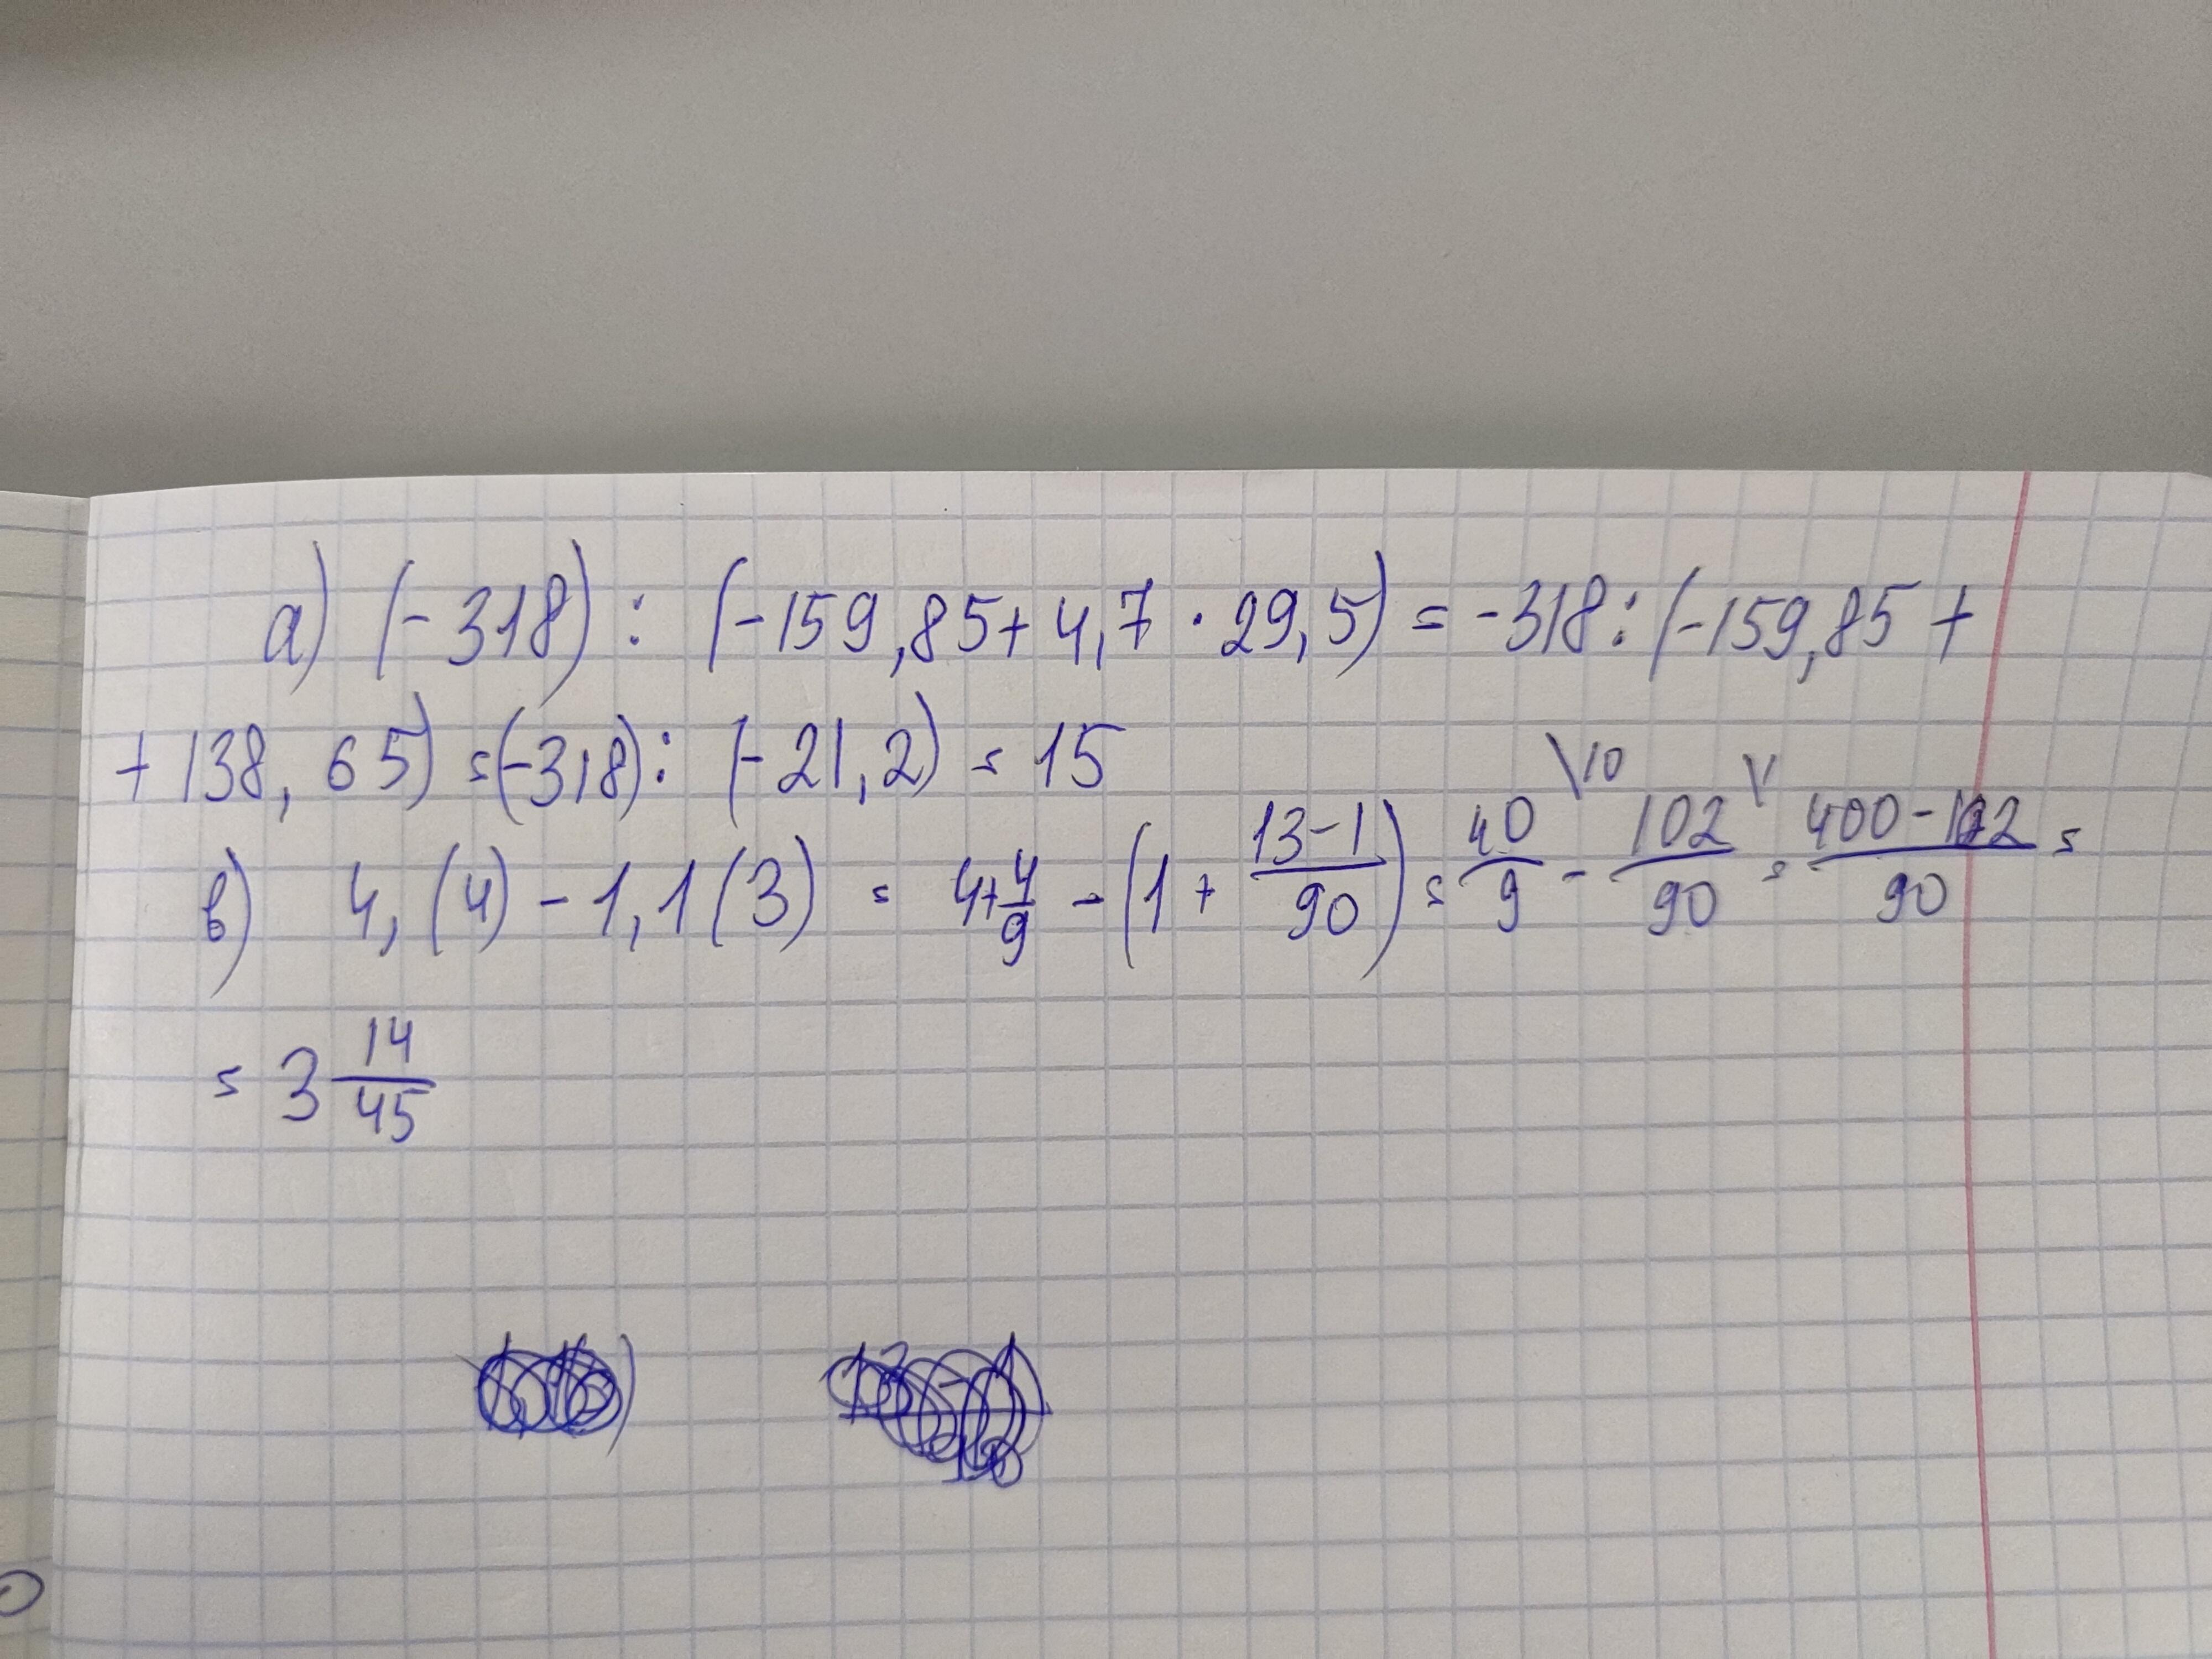 а) (-318) : (-159,85 + 4,7 · 29,5) = -318 : (-159,85 +
+ 138,65) = (-318) : (-21,2) = 15
в) 4,(4) - 1,1(3) = 4+4/9 - (1 + (13-1)/90) = 40/9 \10 - 102/90 \1 = (400-102)/90 =
= 3 14/45